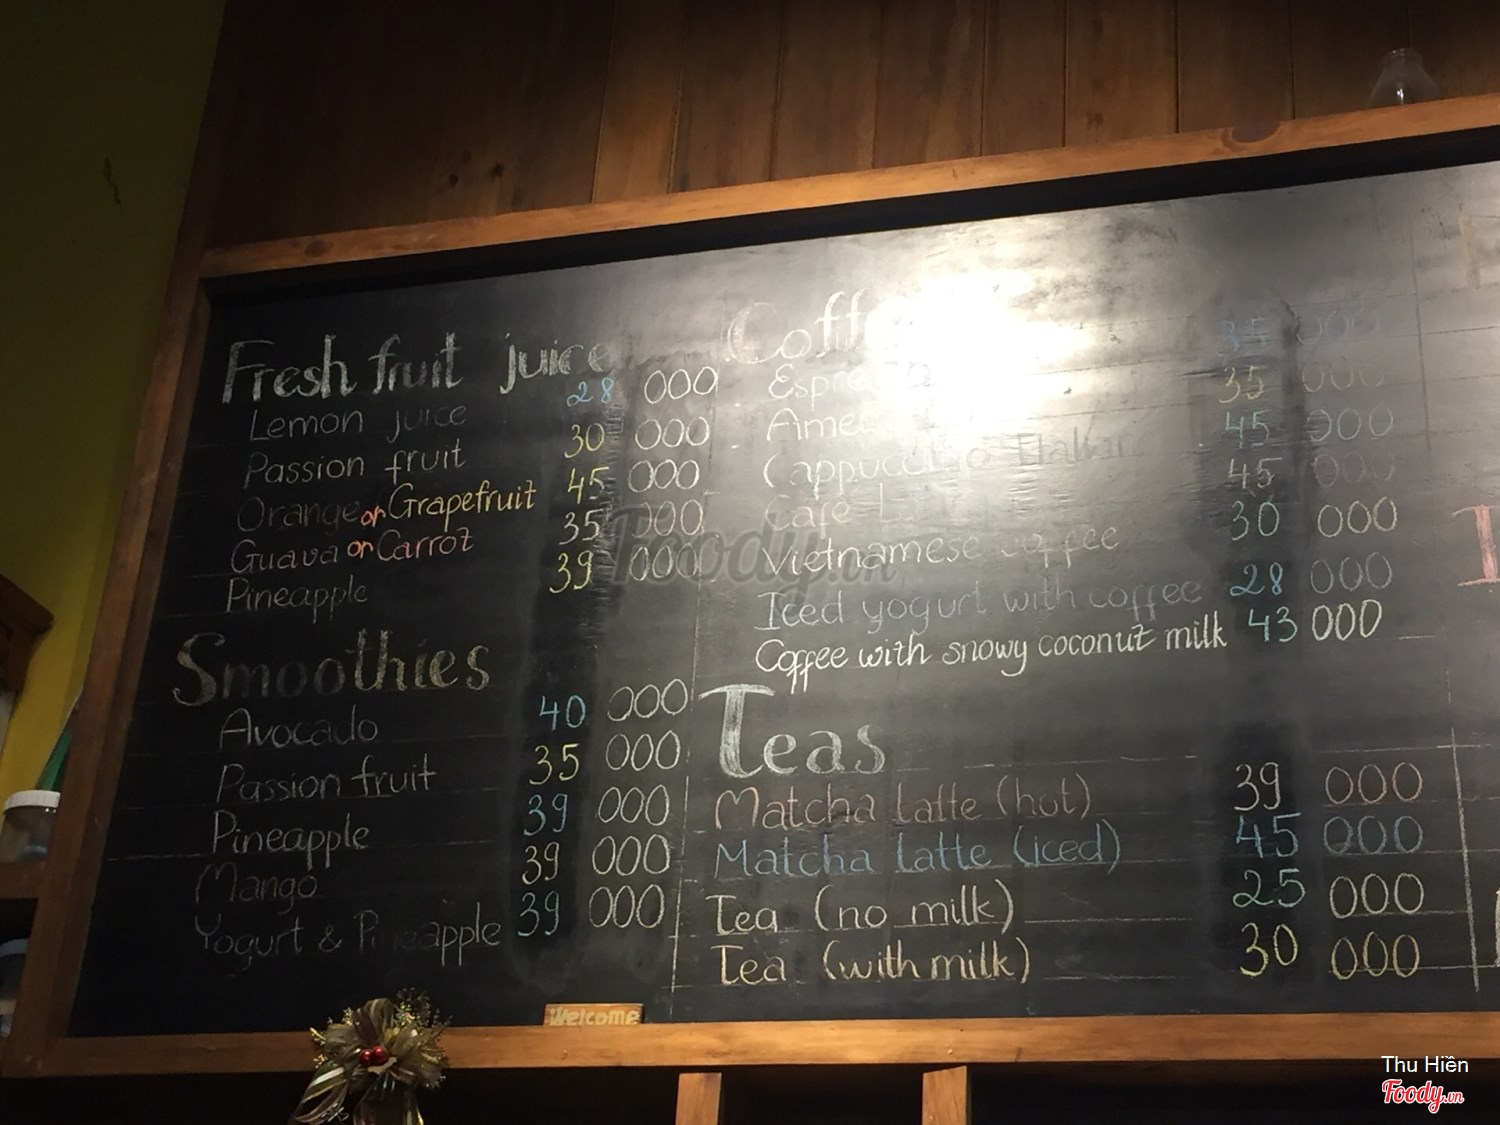 Fresh fruit juice
Lemon juice 28 000
Passion fruit 30 000
Orange or Grapefruit 45 000
Guava or Carrot 35 000
Pineapple 39 000
Smoothies
Avocado 40 000
Passion fruit 35 000
Pineapple 39 000
Mango 39 000
Yogurt & Pineapple 39 000
Espresso 35 000
35 000
Cappuccino Italian 45 000
Cafe 45 000
Vietnamese coffee 30 000
Iced yogurt with coffee 28 000
Coffee with snowy coconut milk 43 000
Teas
Matcha latte (hot) 39 000
Matcha latte (iced) 45 000
Tea (no milk) 25 000
Tea (with milk) 30 000
Welcome
Foody.vn
Thu Hiền
Foody.vn